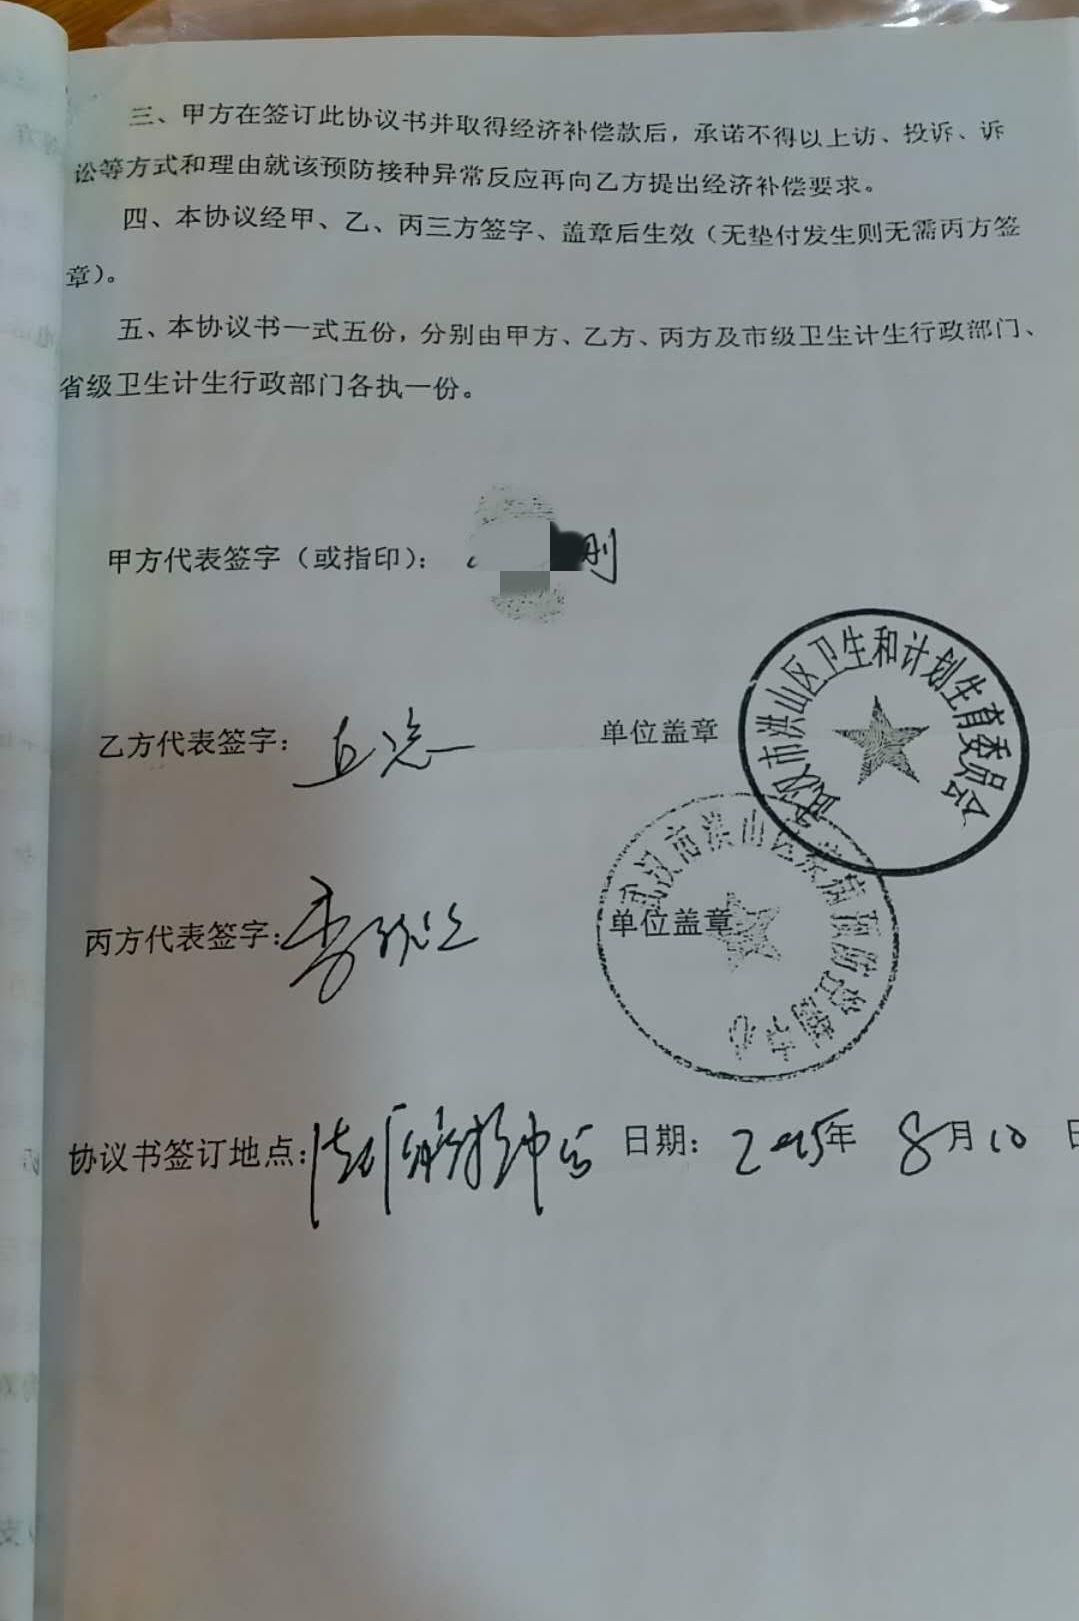 三、甲方在签订此协议书并取得经济补偿款后，承诺不得以上访、投诉、诉
讼等方式和理由就该预防接种异常反应再向乙方提出经济补偿要求。
四、本协议经甲、乙、丙三方签字、盖章后生效（无垫付发生则无需丙方签
章）。
五、本协议书一式五份，分别由甲方、乙方、丙方及市级卫生计生行政部门、
省级卫生计生行政部门各执一份。
甲方代表签字（或指印）： 刚
乙方代表签字： 单位盖章
武汉市洪山区卫生和计划生育委员会
丙方代表签字： 李 单位盖章
武汉市洪山区疾病预防控制中心
协议书签订地点： 日期： 年 8月10日